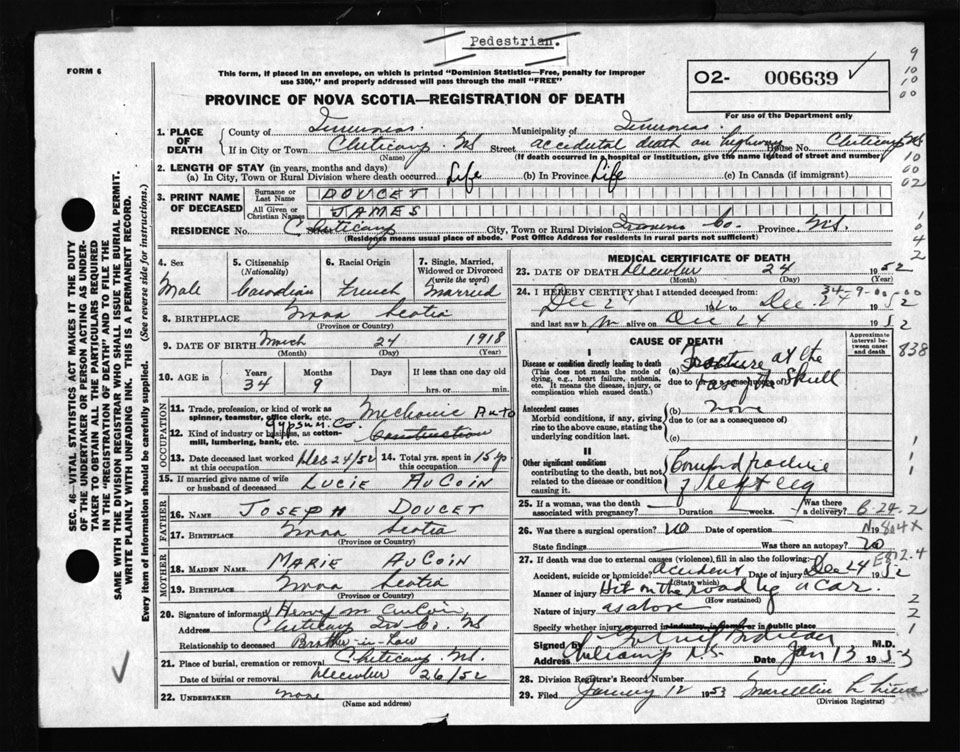 Pedestrian.
FORM 6
This form, if placed in an envelope, on which is printed "Dominion Statistics—Free, penalty for improper
use $300," and properly addressed will pass through the mail "FREE"
02- 006639 ✓
For use of the Department only
PROVINCE OF NOVA SCOTIA—REGISTRATION OF DEATH
1. PLACE OF DEATH
County of Inverness. Municipality of Inverness.
If in City or Town Cheticamp. NS Street accidental death on highway House No. Cheticamp NS
(Name) (If death occurred in a hospital or institution, give the name instead of street and number)
2. LENGTH OF STAY (in years, months and days)
(a) In City, Town or Rural Division where death occurred Life (b) In Province Life (c) In Canada (if immigrant)
3. PRINT NAME OF DECEASED
Surname or Last Name DOUCET
All Given or Christian Names JAMES
RESIDENCE No. Cheticamp Street City, Town or Rural Division Inverness Co. Province N.S.
(Residence means usual place of abode. Post Office Address for residents in rural parts not sufficient)
4. Sex Male
5. Citizenship (Nationality) Canadian
6. Racial Origin French
7. Single, Married, Widowed or Divorced (write the word) Married
8. BIRTHPLACE Nova Scotia
(Province or Country)
9. DATE OF BIRTH March 24 1918
(Month) (Day) (Year)
10. AGE IN Years Months Days If less than one day old
34 9 hrs. or min.
OCCUPATION
11. Trade, profession, or kind of work as spinner, teamster, office clerk, etc. Mechanic Auto
12. Kind of industry or business, as cotton-mill, lumbering, bank, etc. Gypsum Co. Construction
13. Date deceased last worked at this occupation Dec 24/52 14. Total yrs. spent in this occupation 15 yr
15. If married give name of wife or husband of deceased LUCIE AUCOIN
FATHER
16. NAME JOSEPH DOUCET
17. BIRTHPLACE Nova Scotia
(Province or Country)
MOTHER
18. MAIDEN NAME MARIE AUCOIN
19. BIRTHPLACE Nova Scotia
(Province or Country)
20. Signature of informant Henry M AuCoin
Address Cheticamp Inv Co. NS
Relationship to deceased Brother-in-Law
21. Place of burial, cremation or removal Cheticamp. N.S.
Date of burial or removal December 26/52
22. UNDERTAKER none
(Name and address)
MEDICAL CERTIFICATE OF DEATH
23. DATE OF DEATH December 24 1952
(Month) (Day)
24. I HEREBY CERTIFY that I attended deceased from:
34-9-00-00
Dec 24 to Dec. 24 1952
and last saw h m alive on Dec 24 1952
CAUSE OF DEATH
Approximate interval between onset and death
I
Disease or condition directly leading to death
(This does not mean the mode of dying, e.g., heart failure, asthenia, etc. It means the disease, injury, or complication which caused death.)
(a) Fracture at the
due to (or as a consequence of)
base of Skull
Antecedent causes
Morbid conditions, if any, giving rise to the above cause, stating the underlying condition last.
(b) none
due to (or as a consequence of)
(c)
II
Other significant conditions
contributing to the death, but not related to the disease or condition causing it.
Compound fracture
of left leg
25. If a woman, was the death associated with pregnancy? Duration weeks. Was there a delivery?
26. Was there a surgical operation? no Date of operation 19
State findings Was there an autopsy? no
27. If death was due to external causes (violence), fill in also the following:
Accident, suicide or homicide? accident Date of injury Dec 24 1952
(State which)
Manner of injury Hit on the road by a car.
(How sustained)
Nature of injury as above
Specify whether injury occurred in industry, in home or in public place
Signed by M.D.
Address Cheticamp N.S. Date Jan 13 1953
28. Division Registrar's Record Number
29. Filed January 12 1953
(Division Registrar)
SEC. 46—VITAL STATISTICS ACT MAKES IT THE DUTY
OF THE UNDERTAKER OR PERSON ACTING AS UNDER-
TAKER TO OBTAIN ALL THE PARTICULARS REQUIRED
IN THE "REGISTRATION OF DEATH" AND TO FILE THE
SAME WITH THE DIVISION REGISTRAR WHO SHALL ISSUE THE BURIAL PERMIT.
WRITE PLAINLY WITH UNFADING INK. THIS IS A PERMANENT RECORD.
Every item of information should be carefully supplied. (See reverse side for instructions.)
9
10
10
00
10
00
02
1
0
4
2
838
1
1
1
B-24-2
N804X
E812.4
2
2
1